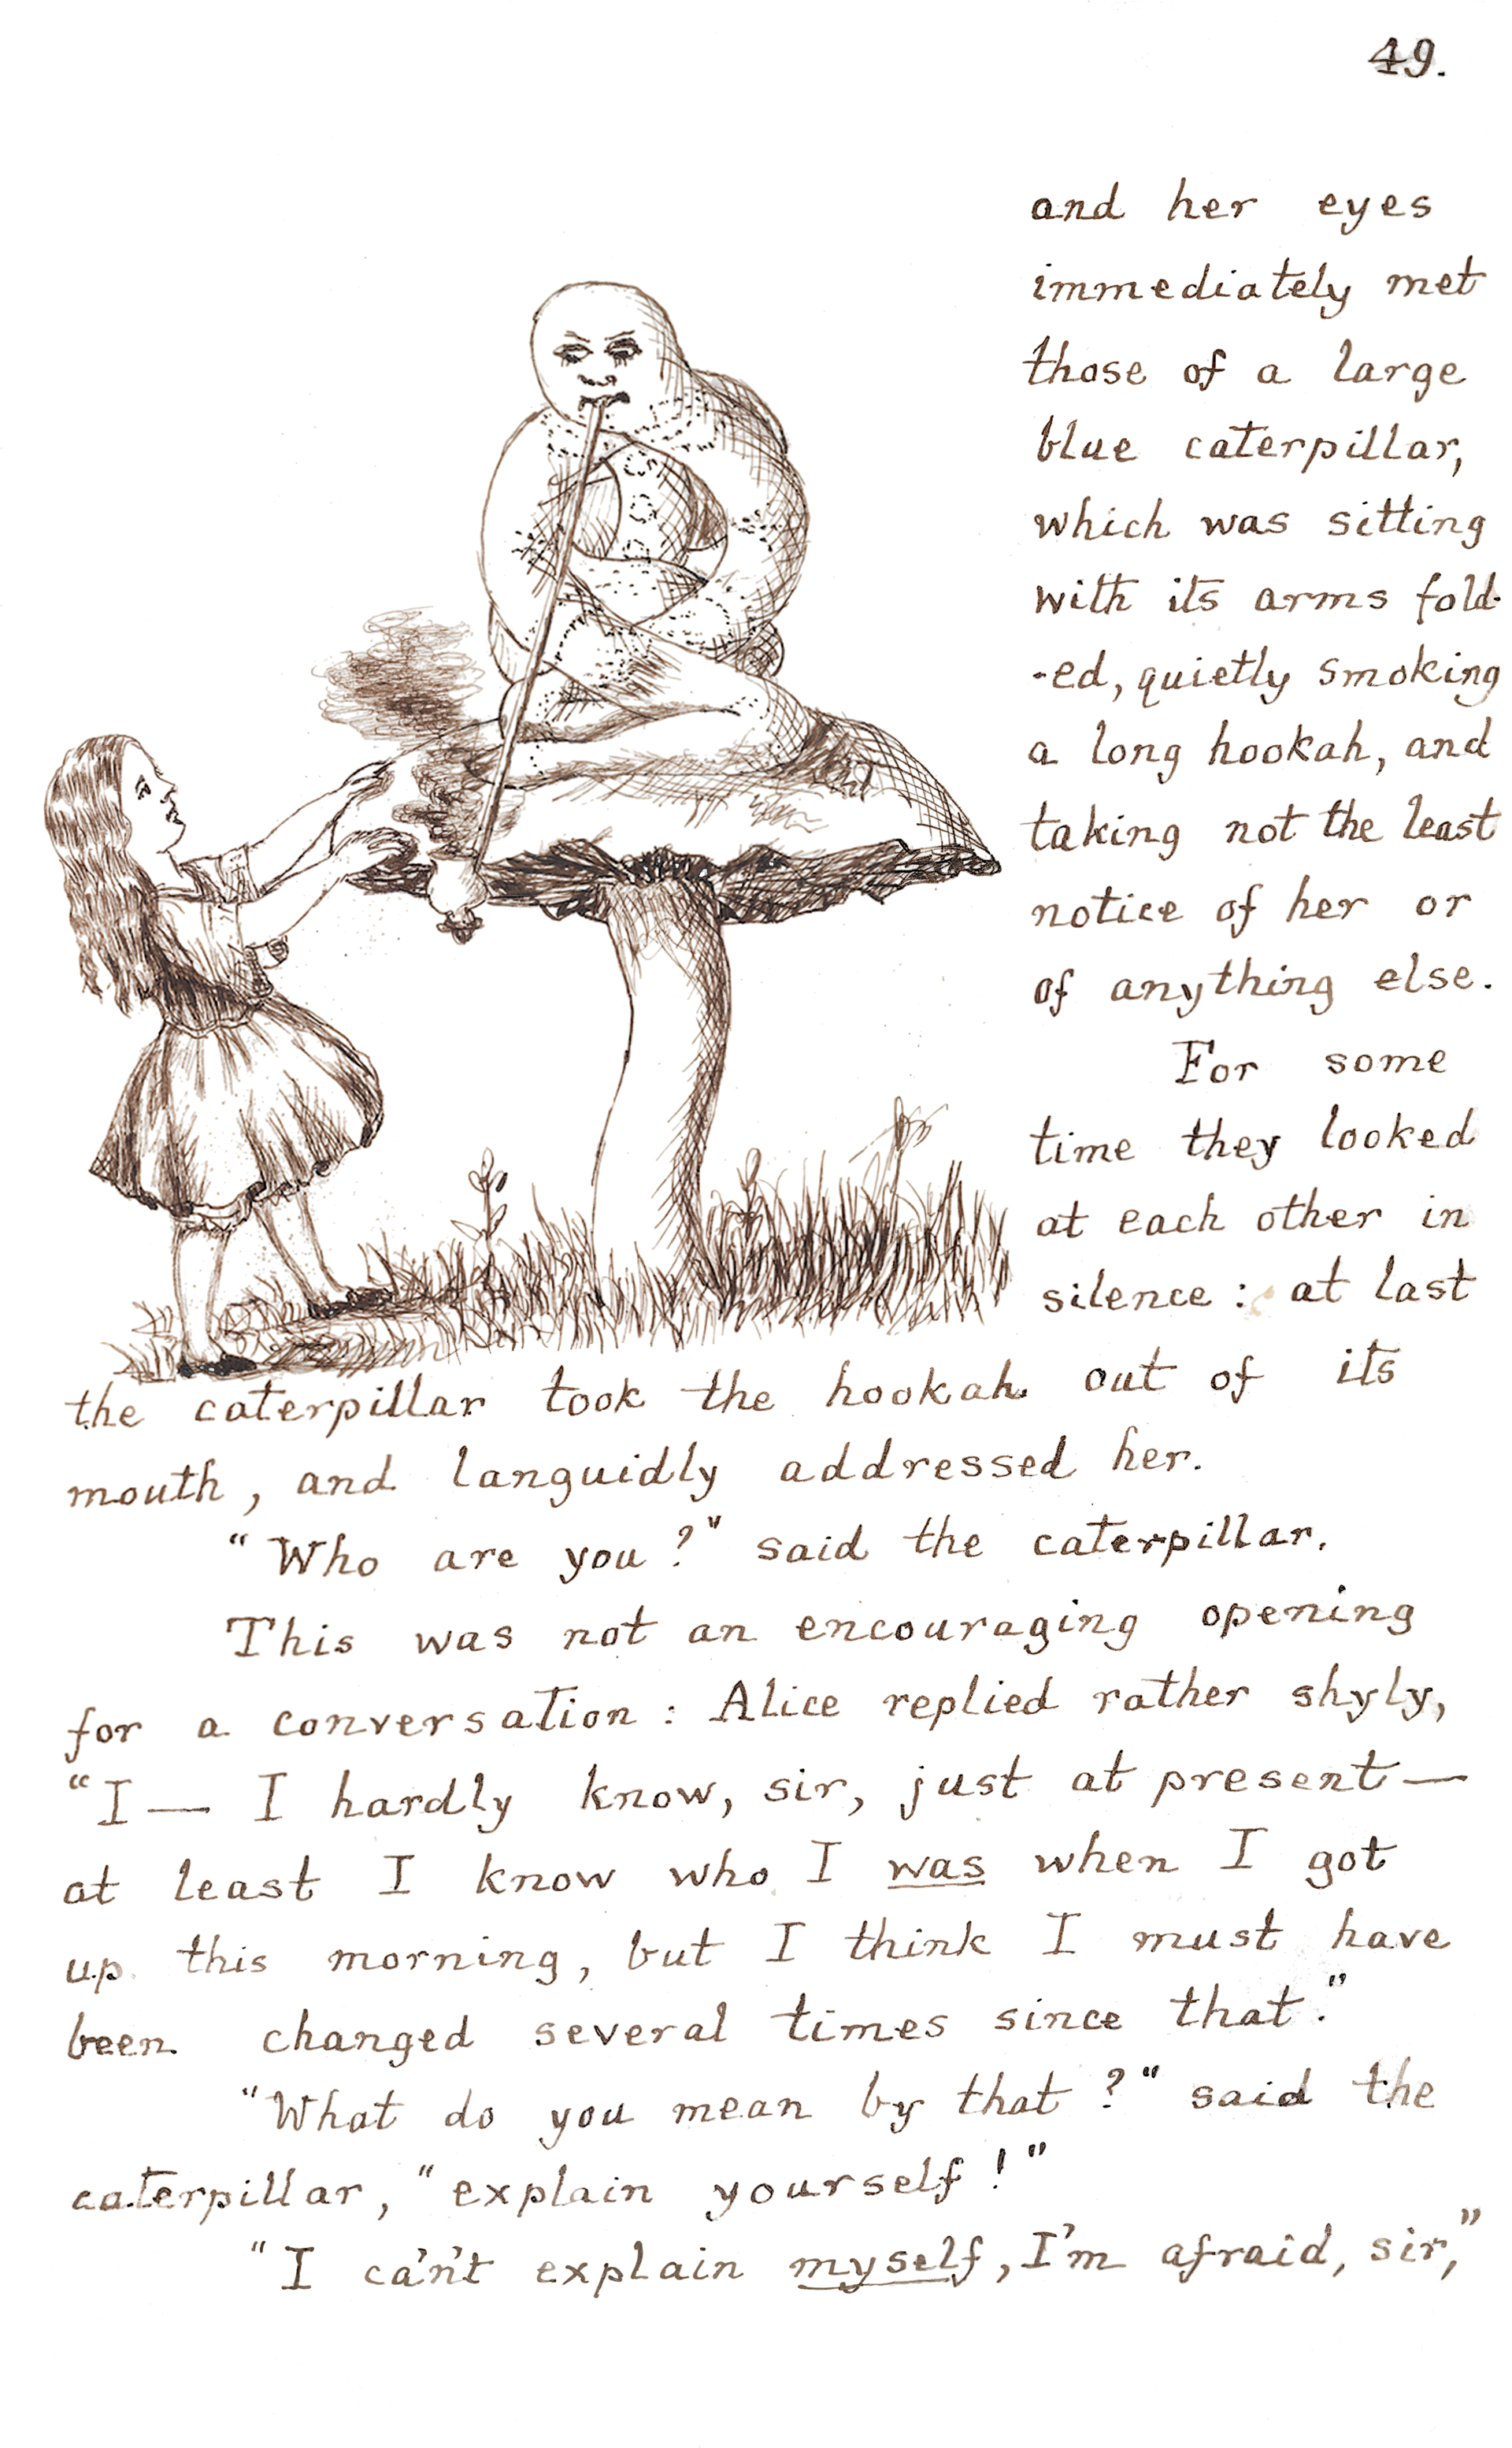 49.
and her eyes
immediately met
those of a large
blue caterpillar,
which was sitting
with its arms fold-
-ed, quietly smoking
a long hookah, and
taking not the least
notice of her or
of anything else.
For some
time they looked
at each other in
silence : at last
the caterpillar took the hookah out of its
mouth, and languidly addressed her.
"Who are you?" said the caterpillar.
This was not an encouraging opening
for a conversation : Alice replied rather shyly,
"I — I hardly know, sir, just at present —
at least I know who I was when I got
up this morning, but I think I must have
been changed several times since that."
"What do you mean by that?" said the
caterpillar, "explain yourself!"
"I ca'n't explain myself, I'm afraid, sir,"